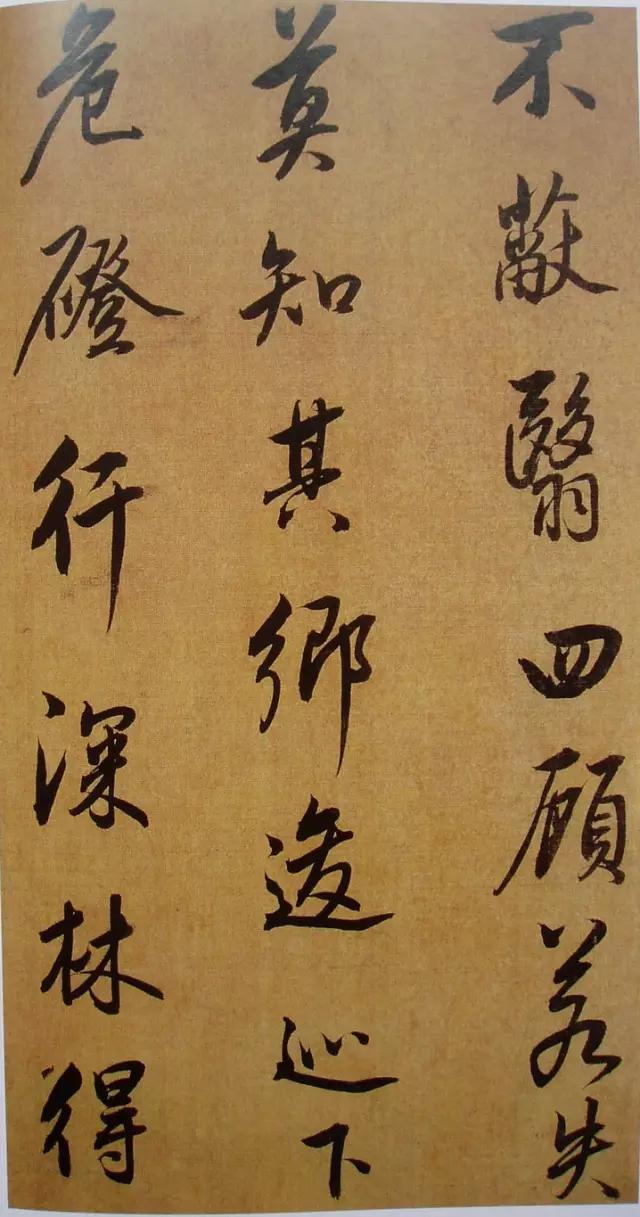 不蔽翳四顧若失
莫知其鄉逡巡下
危磴行深林得